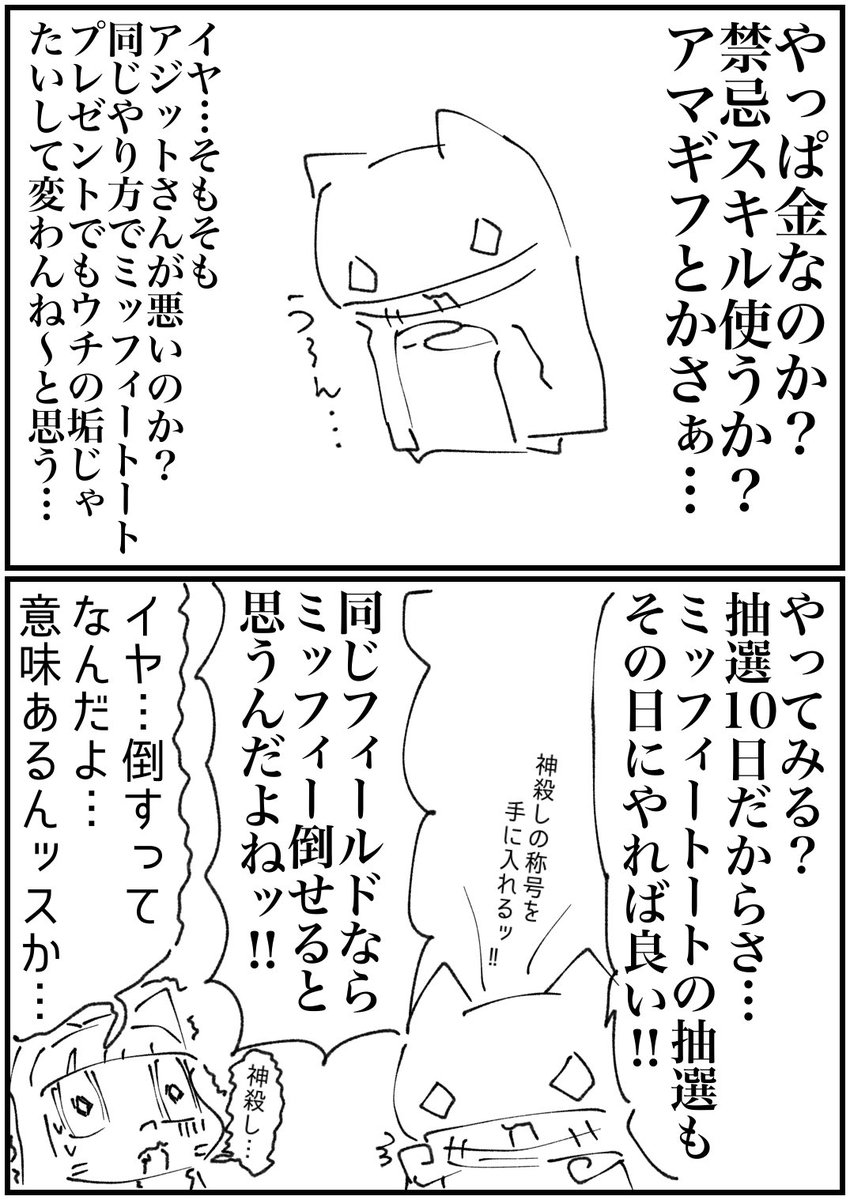 やっぱ金なのか？
禁忌スキル使うか？
アマギフとかさぁ…
う〜ん…
イヤ…そもそも
アジットさんが悪いのか？
同じやり方でミッフィートート
プレゼントでもウチの垢じゃ
たいして変わんね〜と思う…
やってみる？
抽選10日だからさ…
ミッフィートートの抽選も
その日にやれば良い!!
神殺しの称号を
手に入れるッ!!
同じフィールドなら
ミッフィー倒せると
思うんだよねッ!!
神殺し…
イヤ…倒すって
なんだよ…
意味あるんッスか…